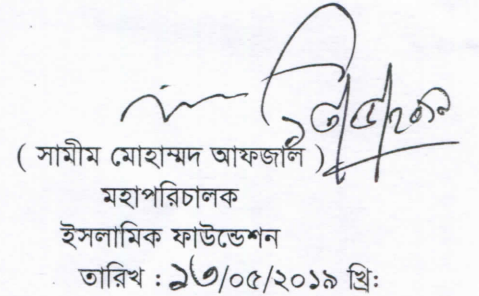 ১৩/৫/২০১৯
( সামীম মোহাম্মদ আফজাল )
মহাপরিচালক
ইসলামিক ফাউন্ডেশন
তারিখ : ১৩/০৫/২০১৯ খ্রি: